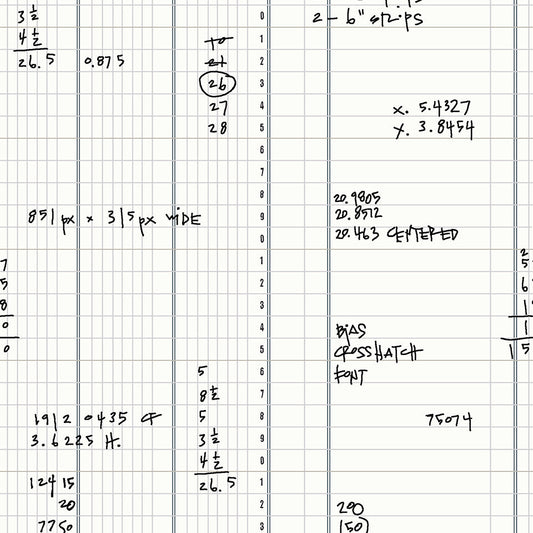 3 ½
4 ½
26.5 0.875
10
21
26
27
28
0
1
2
3
4
5
6
7
8
9
0
1
2
3
4
5
6
7
8
9
0
1
2
3
2 - 6" strips
x. 5.4327
y. 3.8454
851px x 315px wide
20.9805
20.8512
20.463 CENTERED
7
5
8
0
0
BIAS
CROSSHATCH
FONT
2
5
6
1
1
1 5
5
8 ½
5
3 ½
4 ½
26.5
1912 0435 CF
3.6225 H.
75074
12415
20
7750
200
150